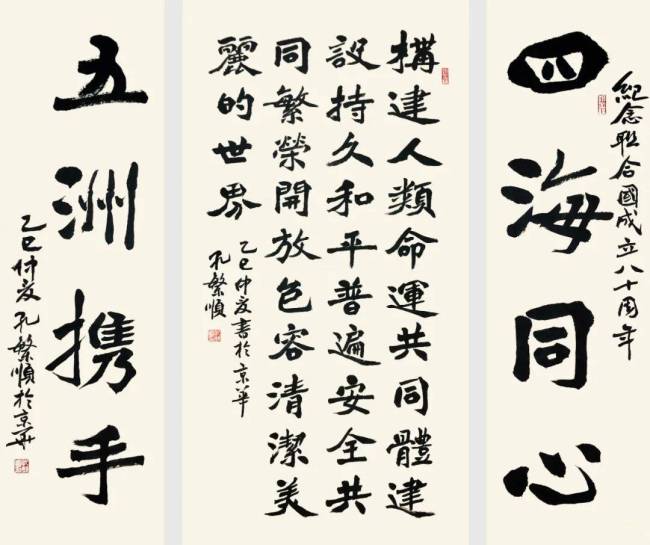 紀念聯合國成立八十周年
四海同心
構建人類命運共同體建
設持久和平普遍安全共
同繁榮開放包容清潔美
麗的世界
乙巳仲夏書於京華
孔繁順
五洲携手
乙巳仲夏孔繁順於京華